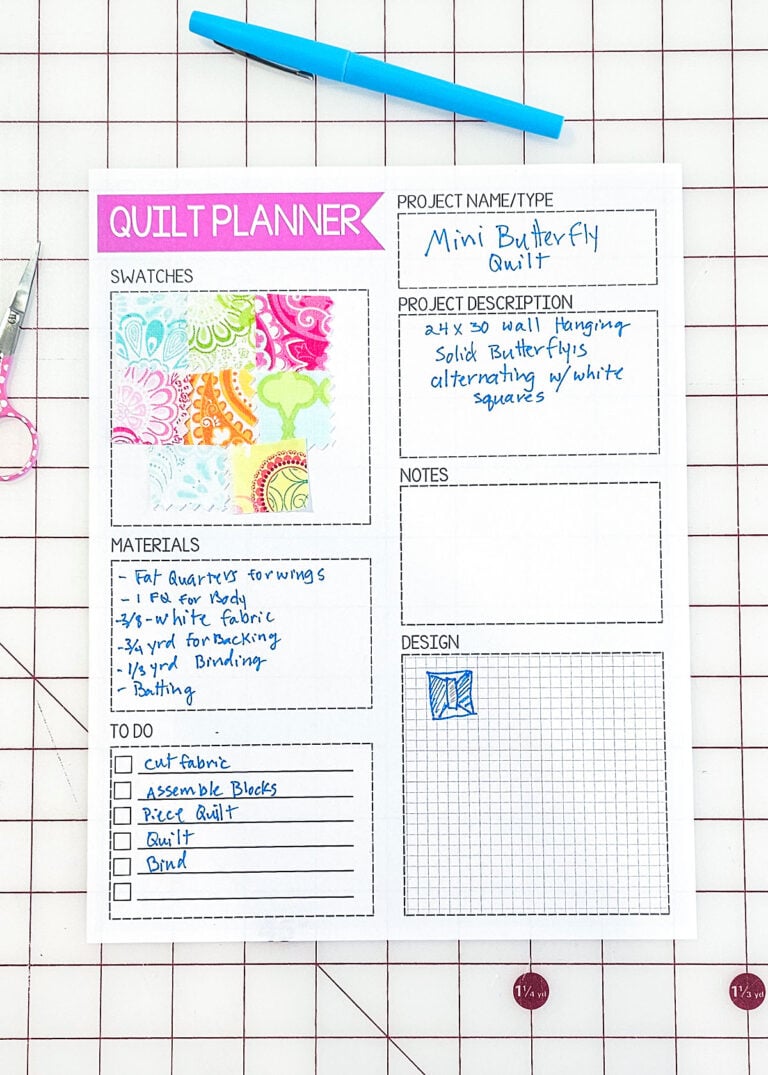 QUILT PLANNER
SWATCHES
MATERIALS
- Fat Quarters for wings
- 1 FQ for Body
-3/8-white fabric
-3/4 yrd for Backing
-1/3 yrd Binding
- Batting
TO DO
cut fabric
Assemble Blocks
Piece Quilt
Quilt
Bind
PROJECT NAME/TYPE
Mini Butterfly
Quilt
PROJECT DESCRIPTION
24 x 30 wall Hanging
Solid Butterflyis
alternating w/white
squares
NOTES
DESIGN
1¼ yd
1⅓ yd